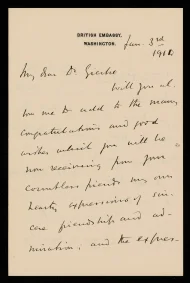 BRITISH EMBASSY,
WASHINGTON.
Jan. 3rd
191
My dear Dr
Will you al-
low me to add to the many
congratulations and good
wishes which you will be
now receiving from your
countless friends my own
hearty expressions of sin-
cere friendship and ad-
miration, and the expres-